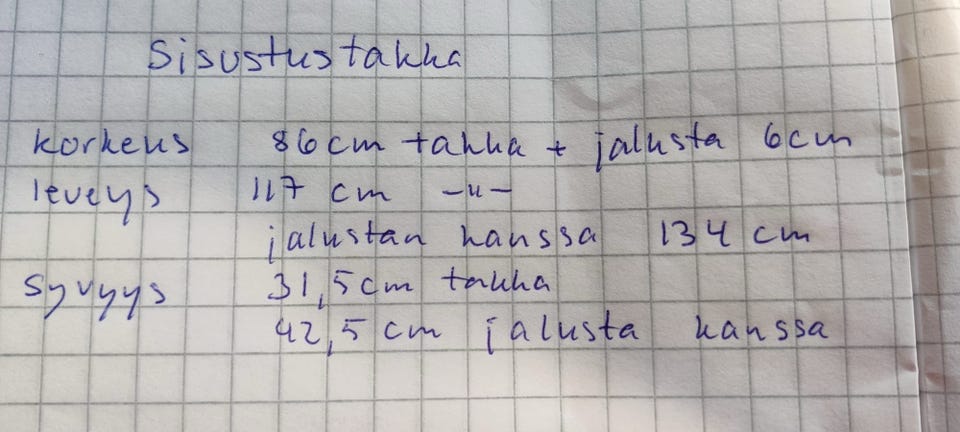 Sisustustakka
korkeus 86cm takka + jalusta 6cm
leveys 117 cm -u-
jalustan kanssa 134 cm
syvyys 31,5cm takka
42,5 cm jalusta kanssa